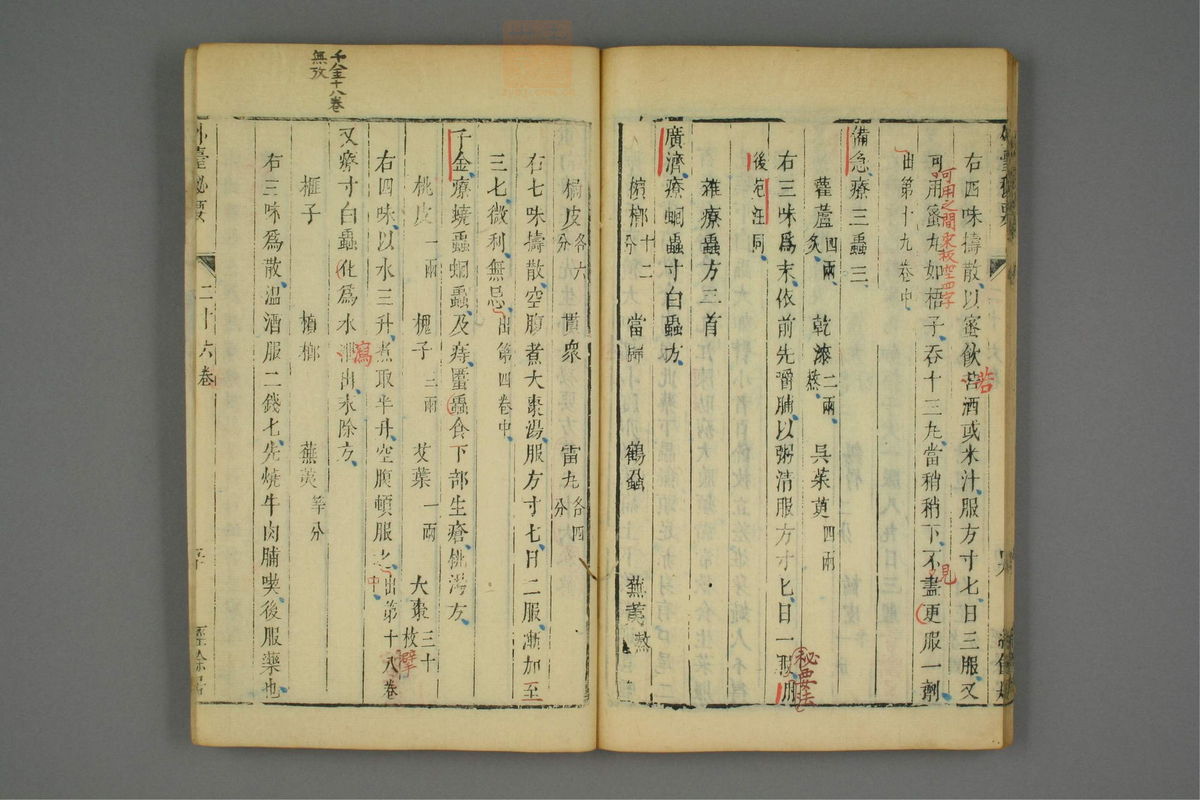 右四味擣散以蜜飲苦酒或米汁服方寸匕日三服又
可用蜜丸如梧子呑十三丸當稍稍下不盡更服一劑
出第十九卷中
備急療三蟲三
藋蘆四兩炙 乾漆二兩熬 吳茱萸四兩
右三味爲末依前先嚼脯以粥清服方寸匕日一服
後范汪同
雜療蟲方三首
廣濟療蚘蟲寸白蟲方
檳榔十二分 當歸 鶴蝨 蕪荑熬
榧皮各六分 貫衆 雷丸各四分
右七味擣散空腹煮大棗湯服方寸匕日二服漸加至
三匕微利無忌出第四卷中
千金療蟯蟲蚘蟲及痔䘌蟲食下部生瘡桃湯方
桃皮一兩 槐子三兩 艾葉一兩 大棗三十枚
右四味以水三升煮取半升空腹頓服之出第十八卷
又療寸白蟲化爲水出永除方
榧子 檳榔 蕪荑等分
右三味爲散温酒服二錢匕先燒牛肉脯喫後服藥也
二十六卷
千金十八卷
無攷
可用之間宋板空四字
苦
見
秘要法
瀉
中
擘